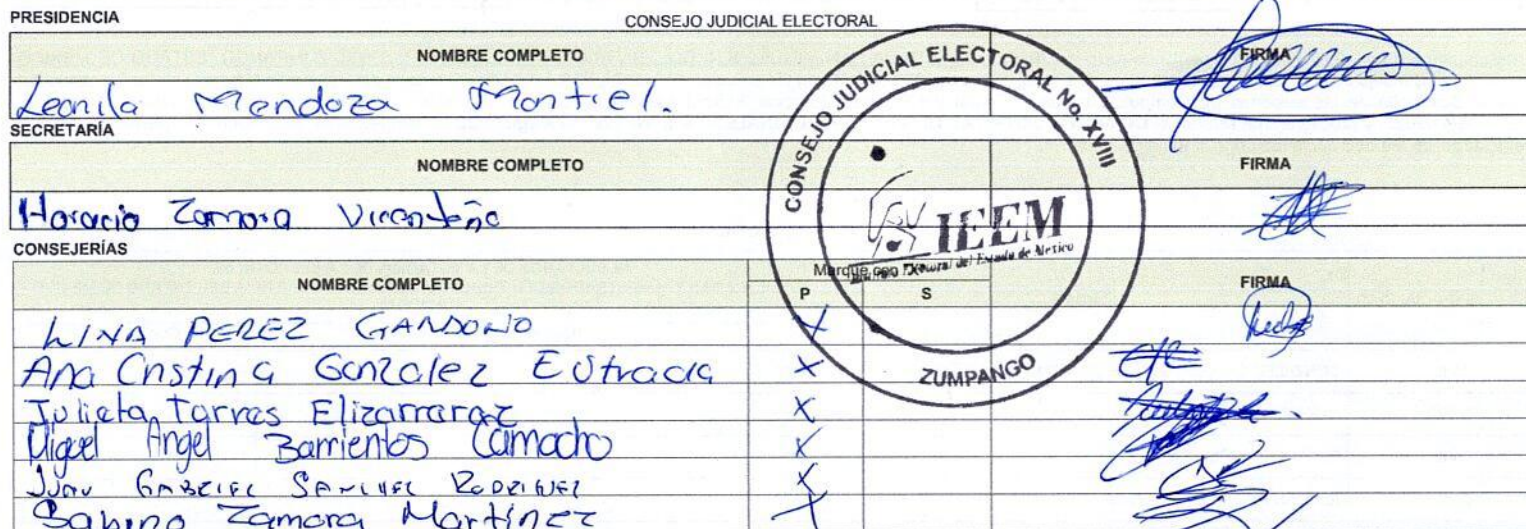 PRESIDENCIA
CONSEJO JUDICIAL ELECTORAL
NOMBRE COMPLETO FIRMA
Leonila Mendoza Montiel.
SECRETARÍA
NOMBRE COMPLETO FIRMA
Horacio Zamora Vicenteño
CONSEJERÍAS
NOMBRE COMPLETO Marque con FIRMA
P S
LINA PEREZ GANDONO X
Ana Cristina Gonzalez Estrada X
Julieta Torres Elizarraraz X
Miguel Angel Barrientos Camacho X
JUAN GABRIEL SANCHEZ RODRIGUEZ X
Sabino Zamora Martínez X
CONSEJO JUDICIAL ELECTORAL No. XVIII
IEEM
Electoral del Estado de México
ZUMPANGO